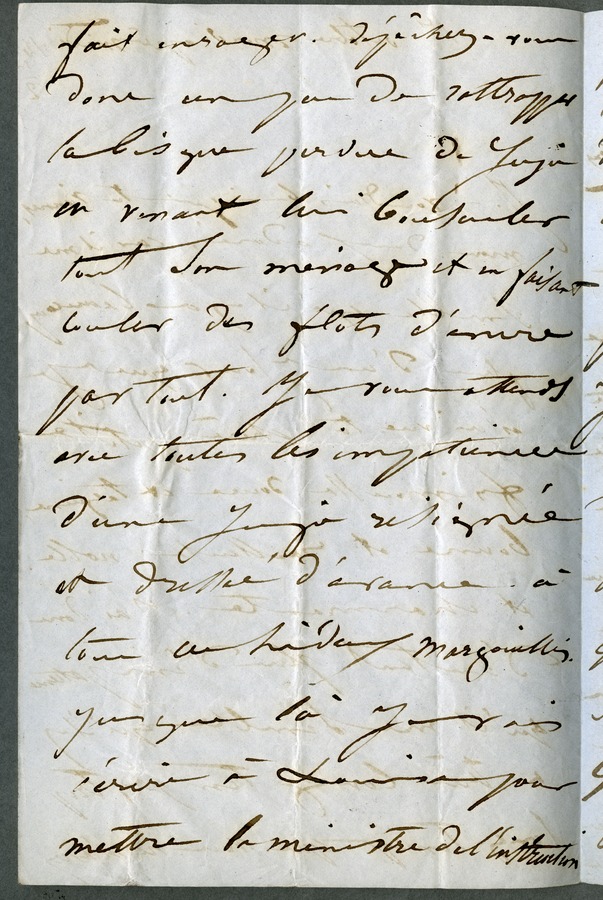 fait enrager. Dépêchez-vous
donc un peu de rattrapper
la bisque perdue de Juju
en venant lui bousculer
tout son menage et en faisant
couler des flots d'encre
partout. Je vous attends
avec toutes les impatiences
d'une Juju résignée
et dressée d'avance à
tous ces hideux margouillis.
jusque là Je vais
écrire à Louise pour
mettre le ministre de l'instruction